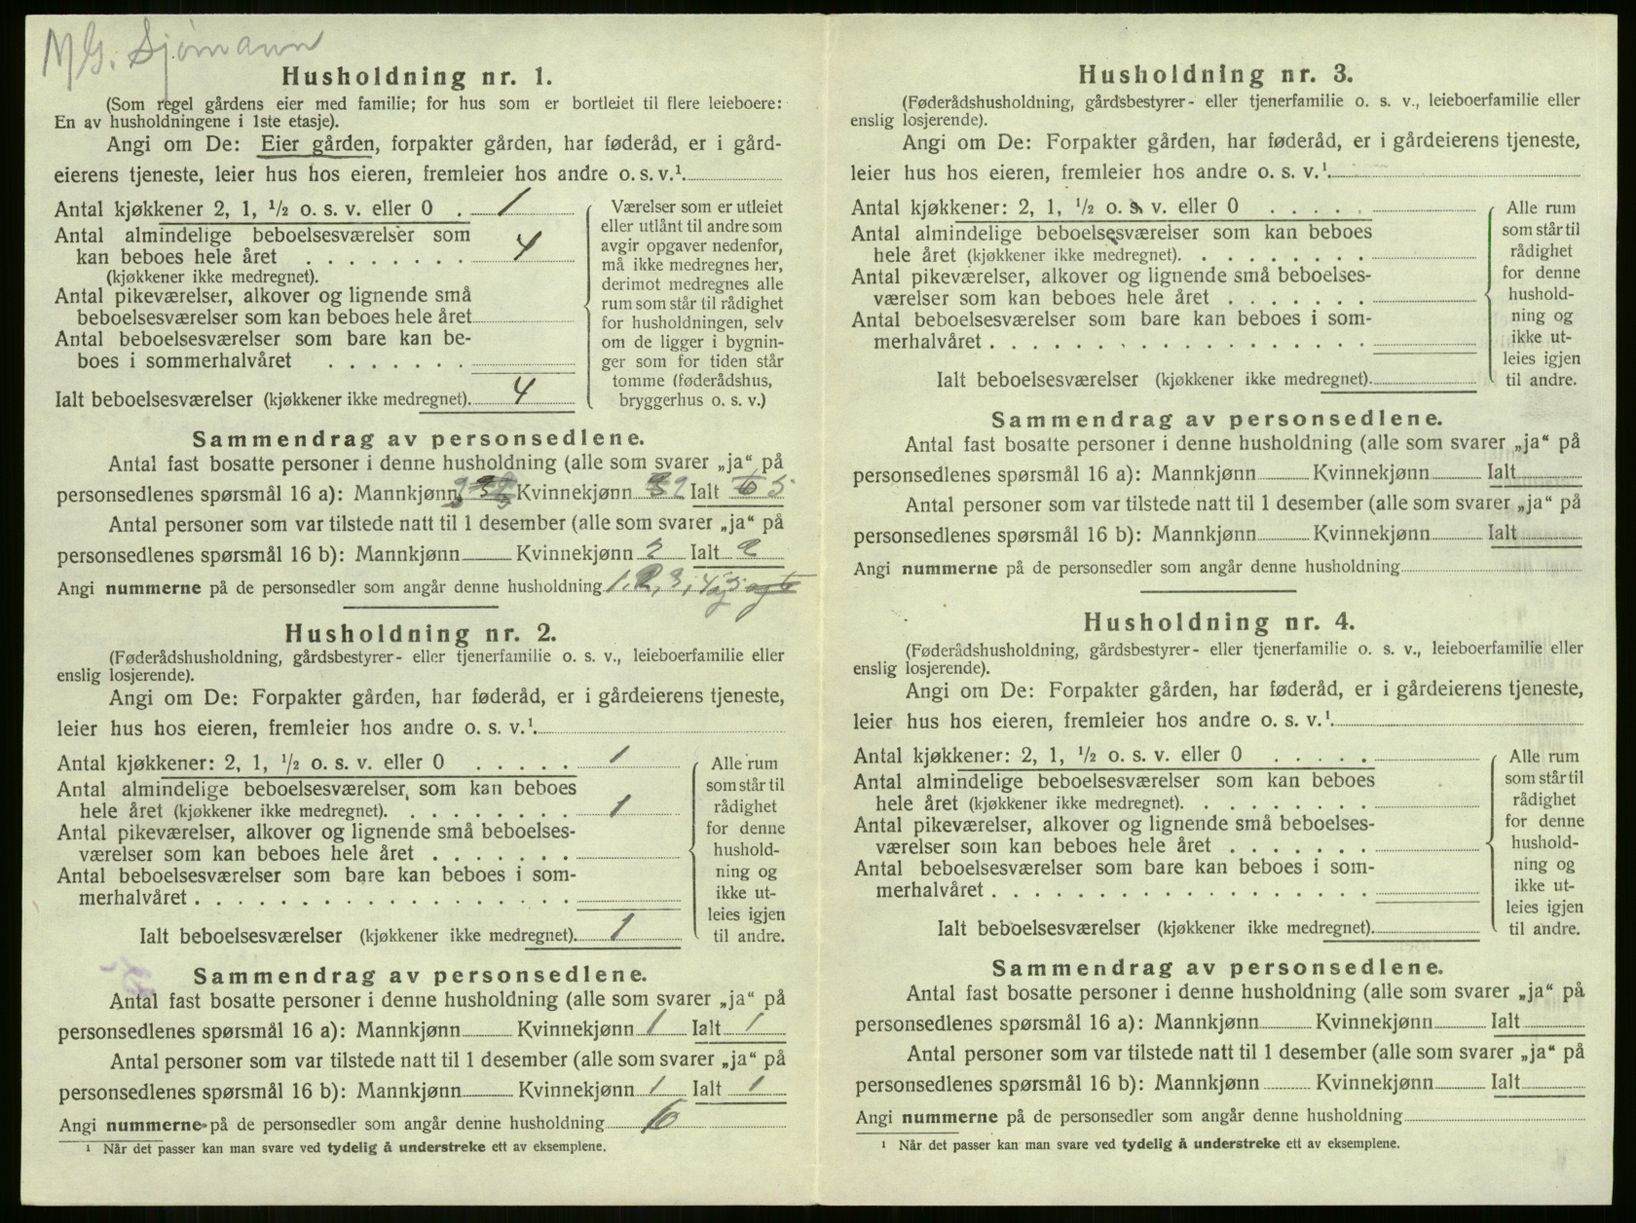 M G. Sjømann
Husholdning nr. 1.
(Som regel gårdens eier med familie; for hus som er bortleiet til flere leieboere:
En av husholdningene i 1ste etasje).
Angi om De: Eier gården, forpakter gården, har føderåd, er i gård-
eierens tjeneste, leier hus hos eieren, fremleier hos andre o. s. v.¹
Antal kjøkkener 2, 1, ½ o. s. v. eller 0 . 1
Antal almindelige beboelsesværelser som
kan beboes hele året . . . . . . . . 4
(kjøkkener ikke medregnet).
Antal pikeværelser, alkover og lignende små
beboelsesværelser som kan beboes hele året
Antal beboelsesværelser som bare kan be-
boes i sommerhalvåret . . . . . . .
Ialt beboelsesværelser (kjøkkener ikke medregnet). 4
Værelser som er utleiet
eller utlånt til andre som
avgir opgaver nedenfor,
må ikke medregnes her,
derimot medregnes alle
rum som står til rådighet
for husholdningen, selv
om de ligger i bygnin-
ger som for tiden står
tomme (føderådshus,
bryggerhus o. s. v.)
Sammendrag av personsedlene.
Antal fast bosatte personer i denne husholdning (alle som svarer „ja“ på
personsedlenes spørsmål 16 a): Mannkjønn 3 Kvinnekjønn 2 Ialt 5
Antal personer som var tilstede natt til 1 desember (alle som svarer „ja“ på
personsedlenes spørsmål 16 b): Mannkjønn Kvinnekjønn 2 Ialt 2
Angi nummerne på de personsedler som angår denne husholdning 1, 2, 3, 4 og 5 og 6
Husholdning nr. 2.
(Føderådshusholdning, gårdsbestyrer- eller tjenerfamilie o. s. v., leieboerfamilie eller
enslig losjerende).
Angi om De: Forpakter gården, har føderåd, er i gårdeierens tjeneste,
leier hus hos eieren, fremleier hos andre o. s. v.¹
Antal kjøkkener: 2, 1, ½ o. s. v. eller 0 . . . . . 1
Antal almindelige beboelsesværelser som kan beboes
hele året (kjøkkener ikke medregnet). . . . . . . . . 1
Antal pikeværelser, alkover og lignende små beboelses-
værelser som kan beboes hele året . . . . . . .
Antal beboelsesværelser som bare kan beboes i som-
merhalvåret . . . . . . . . . . . . . . . . . .
Ialt beboelsesværelser (kjøkkener ikke medregnet). 1
Alle rum
som står til
rådighet
for denne
hushold-
ning og
ikke ut-
leies igjen
til andre.
Sammendrag av personsedlene.
Antal fast bosatte personer i denne husholdning (alle som svarer „ja“ på
personsedlenes spørsmål 16 a): Mannkjønn Kvinnekjønn 1 Ialt 1
Antal personer som var tilstede natt til 1 desember (alle som svarer „ja“ på
personsedlenes spørsmål 16 b): Mannkjønn Kvinnekjønn 1 Ialt 1
Angi nummerne på de personsedler som angår denne husholdning 6
¹ Når det passer kan man svare ved tydelig å understreke ett av eksemplene.
Husholdning nr. 3.
(Føderådshusholdning, gårdsbestyrer- eller tjenerfamilie o. s. v., leieboerfamilie eller
enslig losjerende).
Angi om De: Forpakter gården, har føderåd, er i gårdeierens tjeneste,
leier hus hos eieren, fremleier hos andre o. s. v.¹
Antal kjøkkener: 2, 1, ½ o. s. v. eller 0 . . . . .
Antal almindelige beboelsesværelser som kan beboes
hele året (kjøkkener ikke medregnet). . . . . . . . .
Antal pikeværelser, alkover og lignende små beboelses-
værelser som kan beboes hele året . . . . . . .
Antal beboelsesværelser som bare kan beboes i som-
merhalvåret . . . . . . . . . . . . . . . . . .
Ialt beboelsesværelser (kjøkkener ikke medregnet).
Alle rum
som står til
rådighet
for denne
hushold-
ning og
ikke ut-
leies igjen
til andre.
Sammendrag av personsedlene.
Antal fast bosatte personer i denne husholdning (alle som svarer „ja“ på
personsedlenes spørsmål 16 a): Mannkjønn Kvinnekjønn Ialt
Antal personer som var tilstede natt til 1 desember (alle som svarer „ja“ på
personsedlenes spørsmål 16 b): Mannkjønn Kvinnekjønn Ialt
Angi nummerne på de personsedler som angår denne husholdning
Husholdning nr. 4.
(Føderådshusholdning, gårdsbestyrer- eller tjenerfamilie o. s. v., leieboerfamilie eller
enslig losjerende).
Angi om De: Forpakter gården, har føderåd, er i gårdeierens tjeneste,
leier hus hos eieren, fremleier hos andre o. s. v.¹
Antal kjøkkener: 2, 1, ½ o. s. v. eller 0 . . . . .
Antal almindelige beboelsesværelser som kan beboes
hele året (kjøkkener ikke medregnet). . . . . . . . .
Antal pikeværelser, alkover og lignende små beboelses-
værelser som kan beboes hele året . . . . . . .
Antal beboelsesværelser som bare kan beboes i som-
merhalvåret . . . . . . . . . . . . . . . . . .
Ialt beboelsesværelser (kjøkkener ikke medregnet).
Alle rum
som står til
rådighet
for denne
hushold-
ning og
ikke ut-
leies igjen
til andre.
Sammendrag av personsedlene.
Antal fast bosatte personer i denne husholdning (alle som svarer „ja“ på
personsedlenes spørsmål 16 a): Mannkjønn Kvinnekjønn Ialt
Antal personer som var tilstede natt til 1 desember (alle som svarer „ja“ på
personsedlenes spørsmål 16 b): Mannkjønn Kvinnekjønn Ialt
Angi nummerne på de personsedler som angår denne husholdning
¹ Når det passer kan man svare ved tydelig å understreke ett av eksemplene.